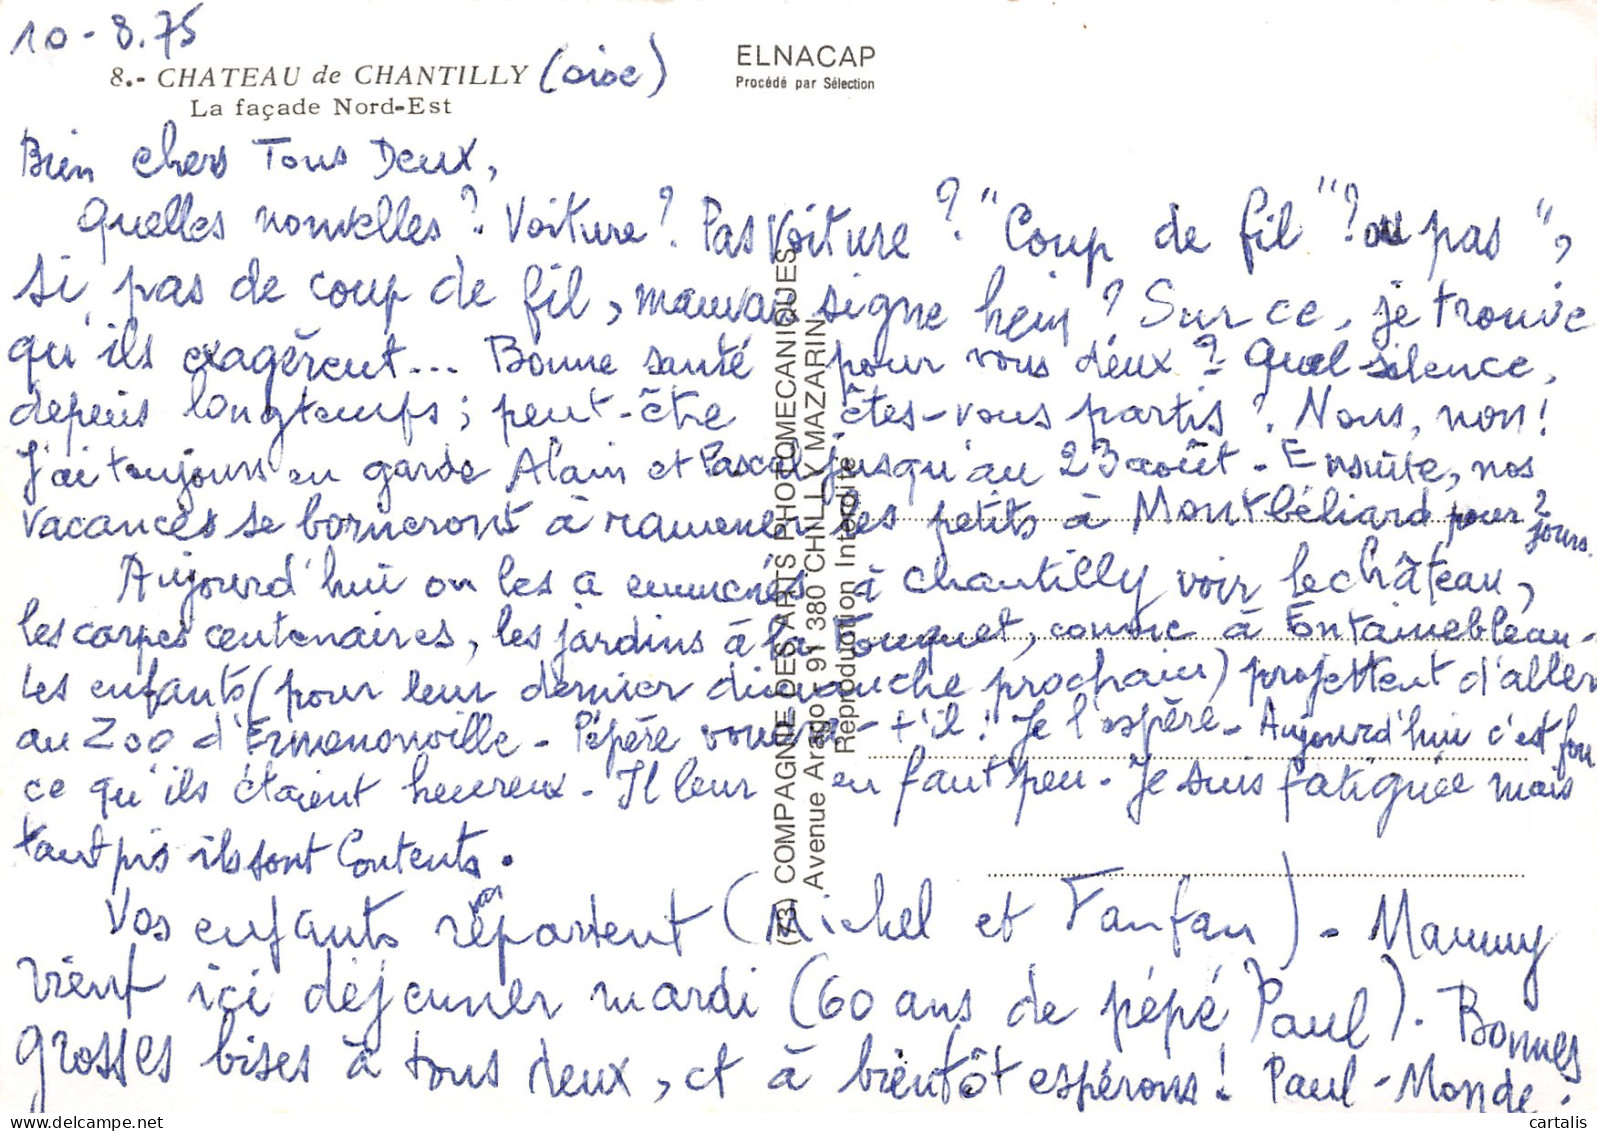 10-8.75
8.- CHATEAU de CHANTILLY (oise)
La façade Nord-Est
ELNACAP
Procédé par Sélection
Bien chers Tous Deux,
Quelles nouvelles? Voiture? Pas voiture? "Coup de fil"? ou pas",
si pas de coup de fil, mauvais signe hein? Sur ce, je trouve
qu'ils exagèrent... Bonne santé pour vous deux? Quel silence,
depuis longtemps; peut-être êtes-vous partis? Nous, non!
J'ai toujours en garde Alain et Pascal jusqu'au 23 août - Ensuite, nos
vacances se borneront à ramener les petits à Montbéliard pour 2 jours.
Aujourd'hui on les a emmenés à chantilly voir le château,
les carpes centenaires, les jardins à la Fouquet, comme à Fontainebleau -
Les enfants (pour leur dernier dimanche prochain) projettent d'aller
au Zoo d'Ermenonville - Pépère voudra-t'il! Je l'espère - Aujourd'hui c'est fou
ce qu'ils étaient heureux - Il leur en faut peu - Je suis fatiguée mais
tant pis ils sont Contents.
Vos enfants repartent (Michel et Fanfan) - Mammy
vient ici déjeuner mardi (60 ans de pépé Paul). Bonnes
grosses bises à tous deux, et à bientôt espérons! Paul-Monde.
(73) COMPAGNIE DES ARTS PHOTOMECANIQUES
Avenue Arago - 91 380 CHILLY MAZARIN
Reproduction Interdite
cartalis